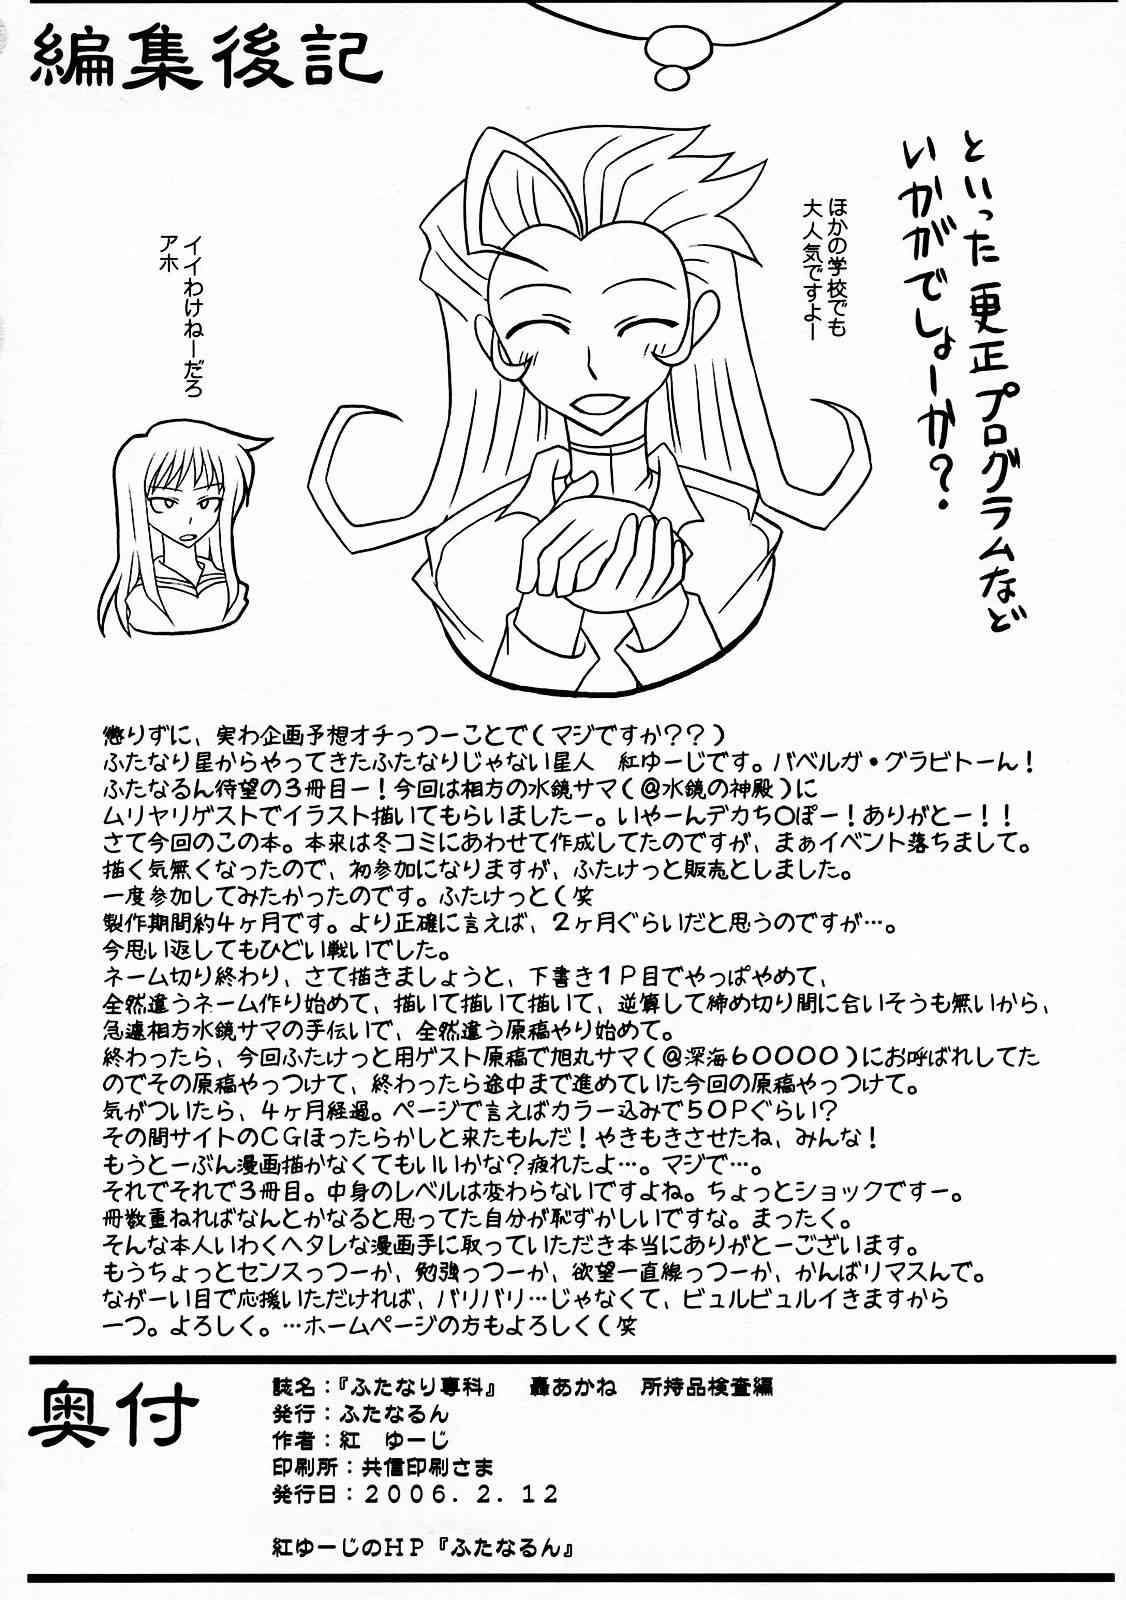 編集後記
といった更正プログラムなど
いかがでしょーか?
ほかの学校でも
大人気ですよー
イイわけねーだろ
アホ
懲りずに、実わ企画予想オチっつーことで(マジですか??)
ふたなり星からやってきたふたなりじゃない星人　紅ゆーじです。バベルガ・グラビトーん!
ふたなるん待望の3冊目ー!今回は相方の水鏡サマ(@水鏡の神殿)に
ムリヤリゲストでイラスト描いてもらいましたー。いやーんデカち○ぽー!ありがとー!!
さて今回のこの本。本来は冬コミにあわせて作成してたのですが、まぁイベント落ちまして。
描く気無くなったので、初参加になりますが、ふたけっと販売としました。
一度参加してみたかったのです。ふたけっと(笑
製作期間約4ヶ月です。より正確に言えば、2ヶ月ぐらいだと思うのですが…。
今思い返してもひどい戦いでした。
ネーム切り終わり、さて描きましょうと、下書き1P目でやっぱやめて、
全然違うネーム作り始めて、描いて描いて描いて、逆算して締め切り間に合いそうも無いから、
急遽相方水鏡サマの手伝いで、全然違う原稿やり始めて。
終わったら、今回ふたけっと用ゲスト原稿で旭丸サマ(@深海60000)にお呼ばれしてた
のでその原稿やっつけて、終わったら途中まで進めていた今回の原稿やっつけて。
気がついたら、4ヶ月経過。ページで言えばカラー込みで50Pぐらい?
その間サイトのCGほったらかしと来たもんだ!やきもきさせたね、みんな!
もうとーぶん漫画描かなくてもいいかな?疲れたよ…。マジで…。
それでそれで3冊目。中身のレベルは変わらないですよね。ちょっとショックですー。
冊数重ねればなんとかなると思ってた自分が恥ずかしいですな。まったく。
そんな本人いわくヘタレな漫画手に取っていただき本当にありがとーございます。
もうちょっとセンスっつーか、勉強っつーか、欲望一直線っつーか、かんばリマスんで。
ながーい目で応援いただければ、バリバリ…じゃなくて、ビュルビュルイきますから
一つ。よろしく。…ホームページの方もよろしく(笑
奥付
誌名:『ふたなり専科』　轟あかね　所持品検査編
発行:ふたなるん
作者:紅　ゆーじ
印刷所:共信印刷さま
発行日:2006.2.12
紅ゆーじのHP『ふたなるん』